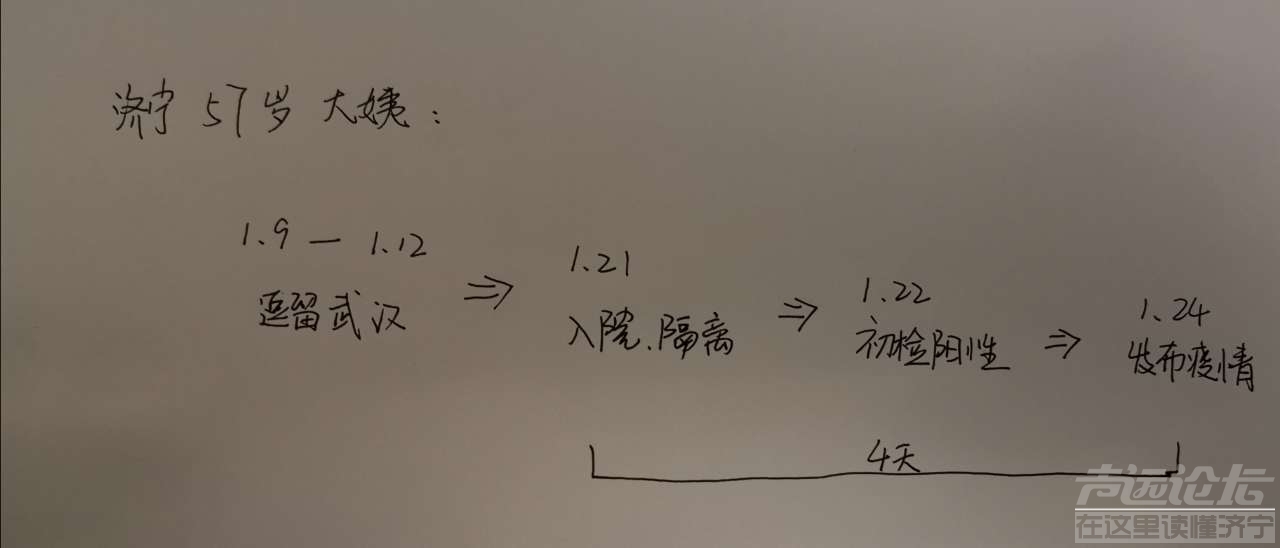 济宁 57岁 大姨：
1.9 — 1.12
逗留武汉
⇒
1.21
入院、隔离
⇒
1.22
初检阳性
⇒
1.24
发布疫情
4天
声远论坛
在这里读懂济宁